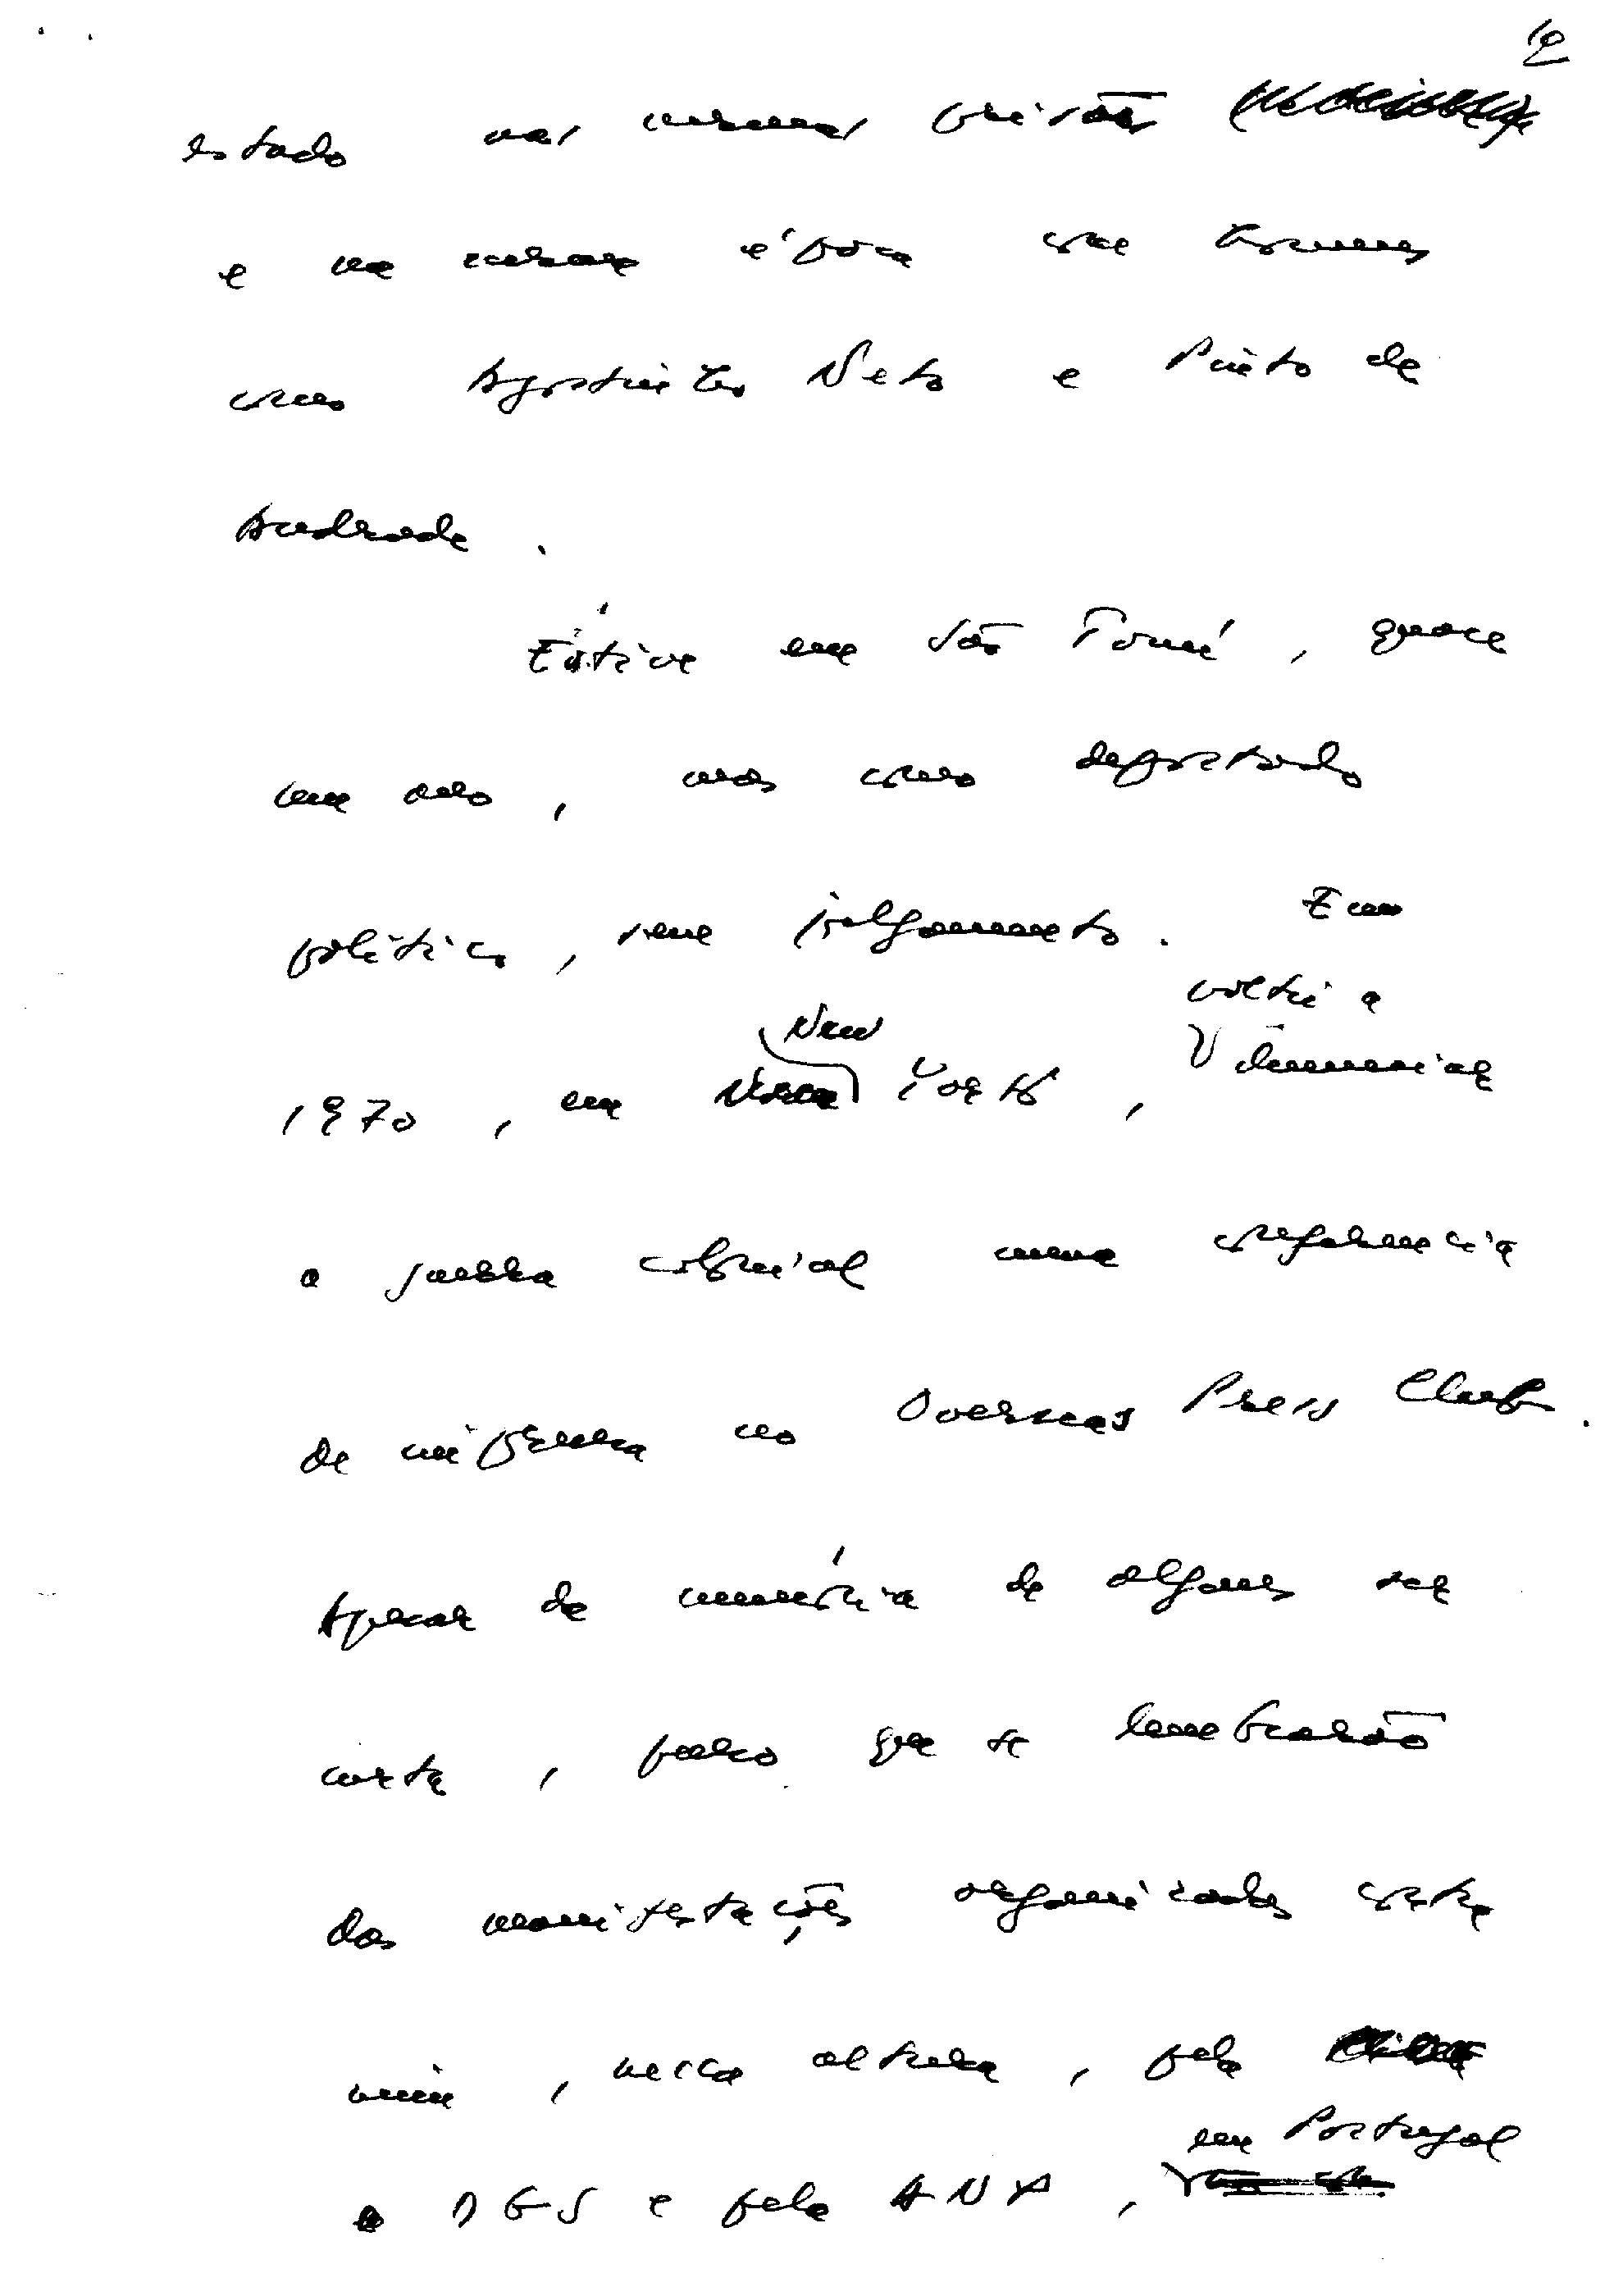 10
estado nas mesmas prisões
e na mesma época que homens
como Agostinho Neto e Pinto de
Andrade.
Estive em São Tomé, quase
um ano, mas como deportado
político, sem julgamento. Em
voltei a
New
1970, em York, denunciar
a guerra colonial numa conferência
de imprensa no Overseas Press Club.
Apesar da memória de alguns ser
curta, penso que se lembrarão
das manifestações organizadas contra
mim, nessa altura, pela
em Portugal
DGS e pela ANP,